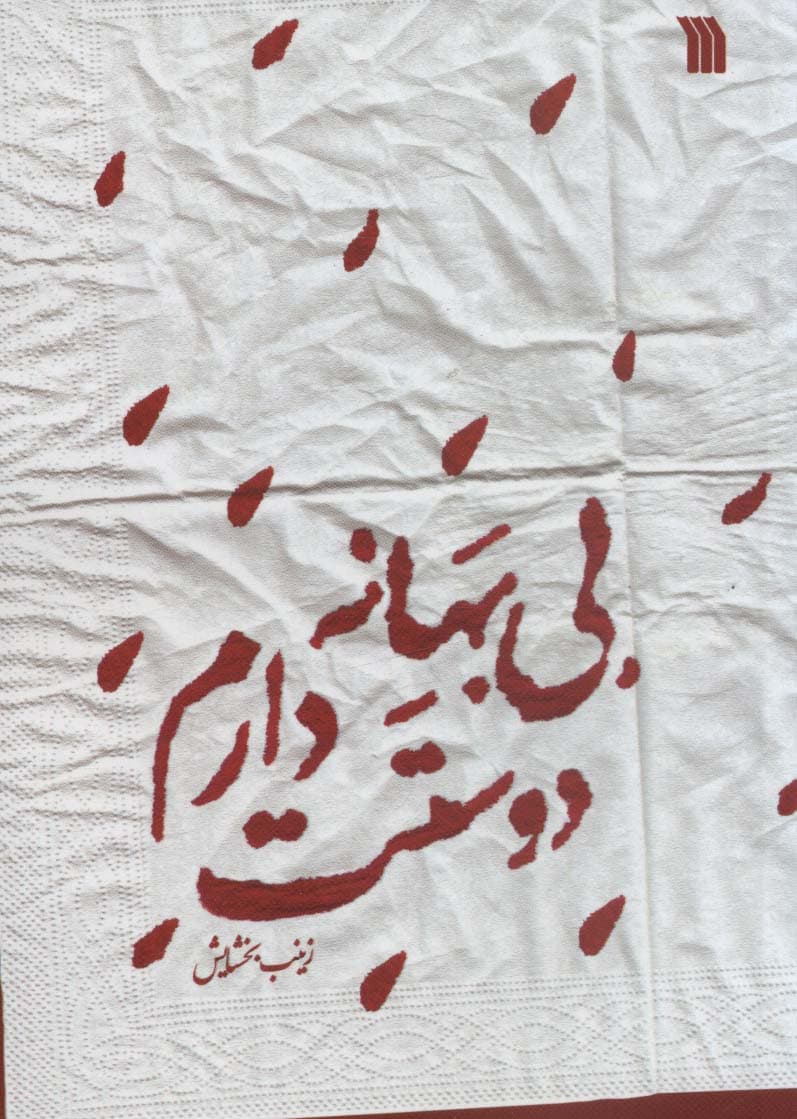 بی بَهانه
دوستَت دارم
زینب بخشایش